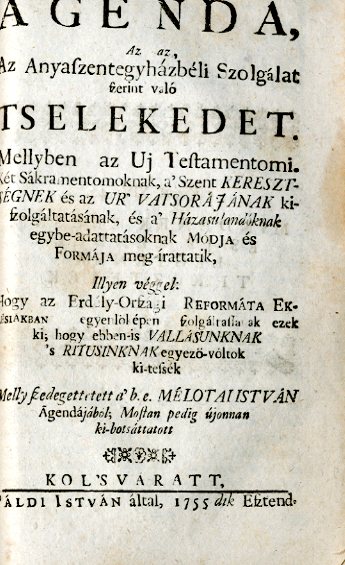 AGENDA,
Az az,
Az Anyaſzentegyházbéli Szolgálat
ſzerint való
TSELEKEDET.
Mellyben az Uj Teſtamentomi.
Két Sákramentomoknak, a' Szent KERESZT-
SÉGNEK és az UR' VATSORÁJÁNAK ki-
ſzolgáltatásának, és a' Házasulandóknak
egybe-adattatásoknak MÓDJA és
FORMÁJA meg-irattatik,
Illyen véggel:
Hogy az Erdély-Orſzági REFORMÁTA EK-
'SIÁKBAN egyenlöképen ſzolgáltaſſanak ezek
ki; hogy ebben-is VALLÁSUNKNAK
's RITUSINKNAK egyező-vóltok
ki-teſsék
Melly ſzedegettetett a' b. e. MÉLOTAI ISTVÁN
Ágendájából; Moſtan pedig újonnan
ki-botsáttatott
KOL'SVARATT,
PÁLDI ISTVÁN által, 1755dik Eſztend-